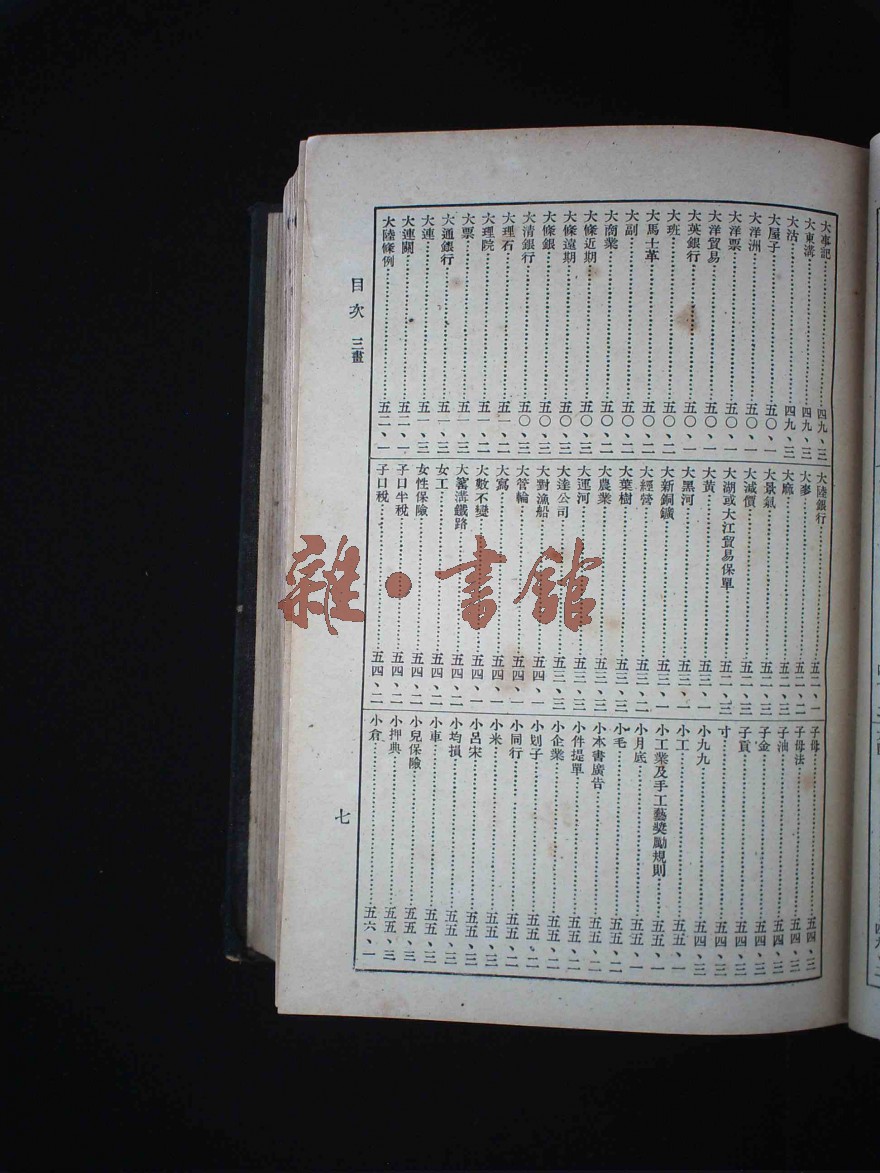 大事記……四九、三
大東溝……四九、三
大沽……四九、三
大屋子……五〇、一
大洋洲……五〇、一
大洋票……五〇、一
大洋貿易……五〇、一
大英銀行……五〇、一
大班……五〇、二
大馬士革……五〇、二
大副……五〇、二
大商業……五〇、二
大條近期……五〇、三
大條遠期……五〇、三
大條銀……五〇、三
大清銀行……五〇、三
大理石……五一、二
大理院……五一、二
大票……五一、三
大通銀行……五一、三
大連……五一、三
大連關……五二、一
大陸條例……五二、一
大陸銀行……五二、一
大麥……五二、二
大麻……五二、二
大景氣……五二、三
大減價……五二、三
大湖或大江貿易保單……五二、三
大黃……五三、一
大黑河……五三、一
大新銅鑛……五三、一
大經營……五三、二
大葉樹……五三、三
大農業……五三、三
大運河……五三、三
大達公司……五三、三
大對漁船……五四、一
大管輪……五四、一
大寫……五四、一
大數不變……五四、一
大窰溝鐵路……五四、二
女工……五四、二
女性保險……五四、二
子口半稅……五四、二
子口稅……五四、二
子母……五四、三
子母法……五四、三
子油……五四、三
子金……五四、三
子貢……五四、三
寸……五四、三
小九九……五四、三
小工……五五、一
小工業及手工藝獎勵規則……五五、一
小月底……五五、一
小毛……五五、二
小本書廣告……五五、二
小件提單……五五、二
小企業……五五、二
小划子……五五、二
小同行……五五、二
小米……五五、三
小呂宋……五五、三
小均損……五五、三
小車……五五、三
小兒保險……五五、三
小押典……五五、三
小倉……五六、一
目次 三畫
七
雜·書館